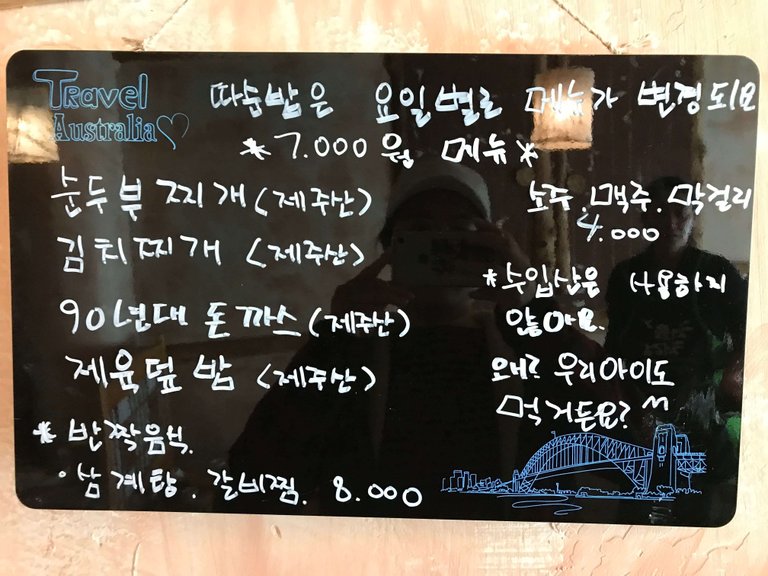 Travel
Australia
따숨밥은 요일별로 메뉴가 변경되요
*7.000원 메뉴*
순두부찌개 (제주산)
김치찌개 (제주산)
90년대 돈까스 (제주산)
제육덮밥 (제주산)
* 반짝음식.
· 삼계탕. 갈비찜. 8.000
소주. 맥주. 막걸리
4.000
*수입산은 사용하지
않아요.
왜? 우리아이도
먹거든요? ^^